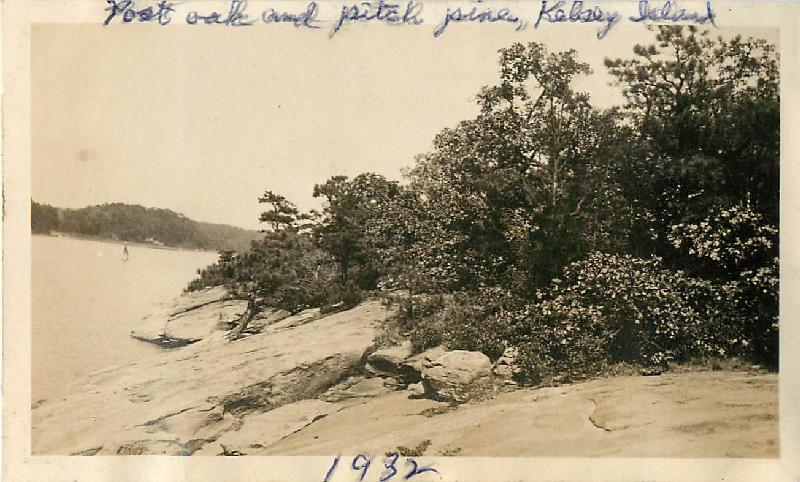 Post oak and pitch pine, Kelsey Island
1932